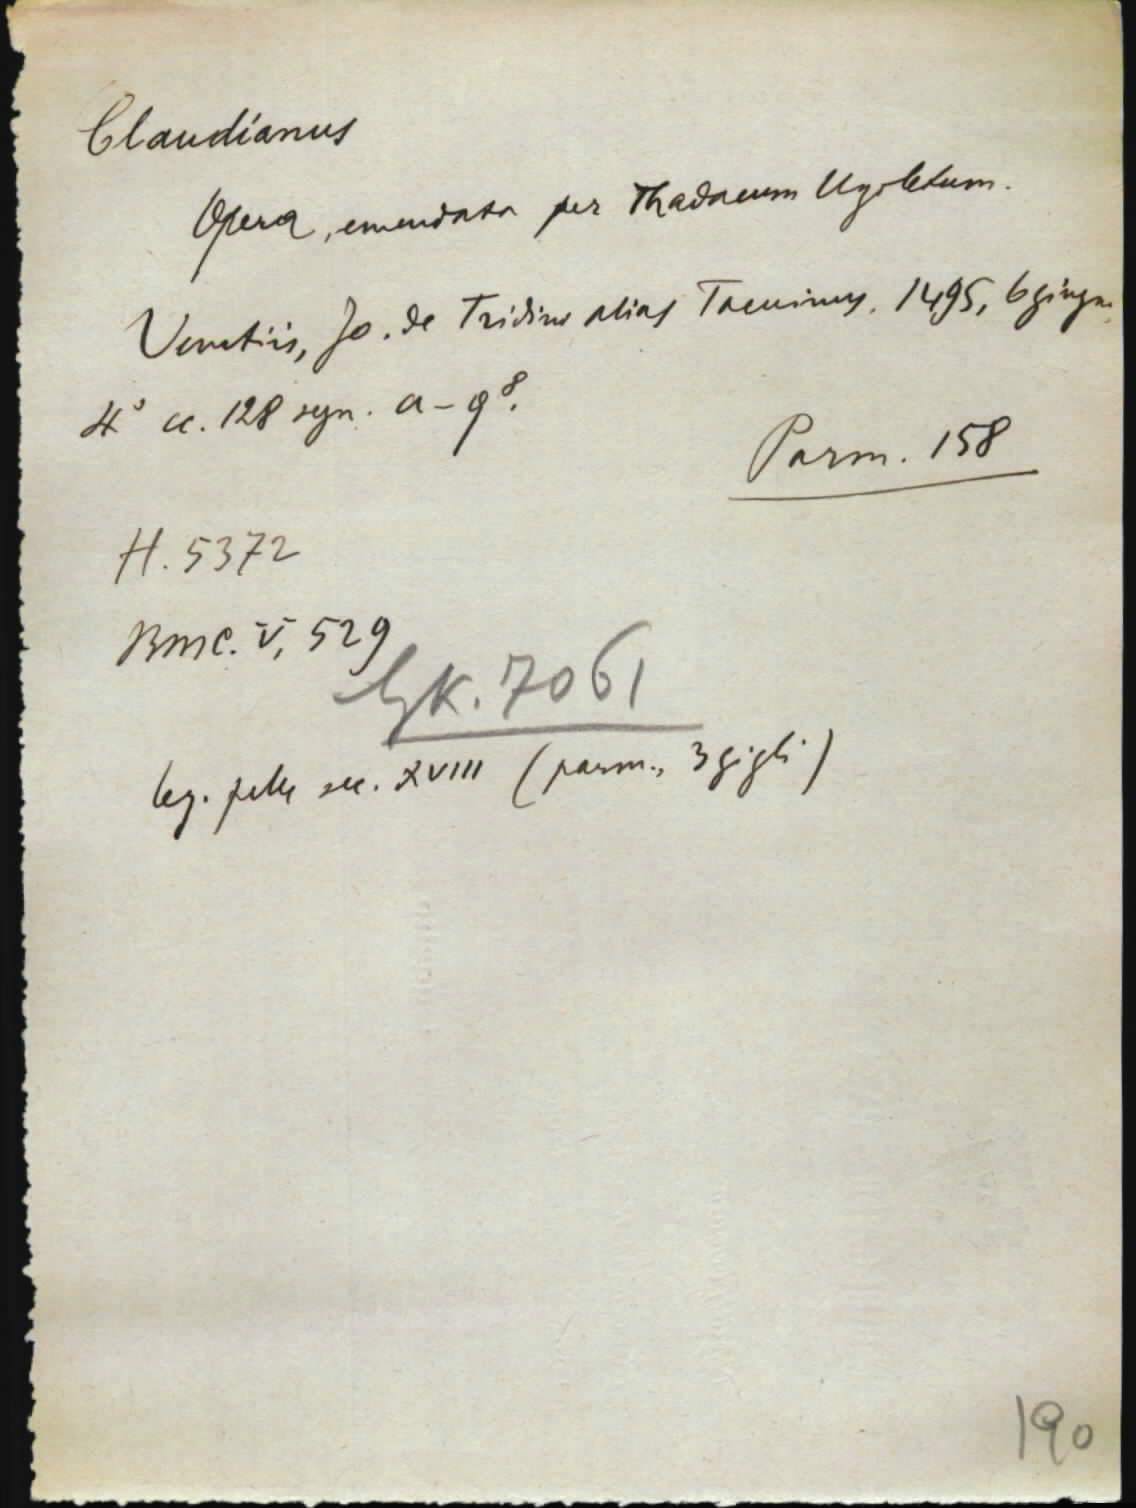 Claudianus
Opera, emendata per Thadaeum Ugoletum.
Venetiis, Jo. de Tridino alias Tacuinus, 1495, 6 giugn.
4° cc. 128 segn. a-q⁸.
Parm. 158
H. 5372
BMC. V, 529
GK. 7061
leg. pelle sec. XVIII (parm., 3 gigli)
190